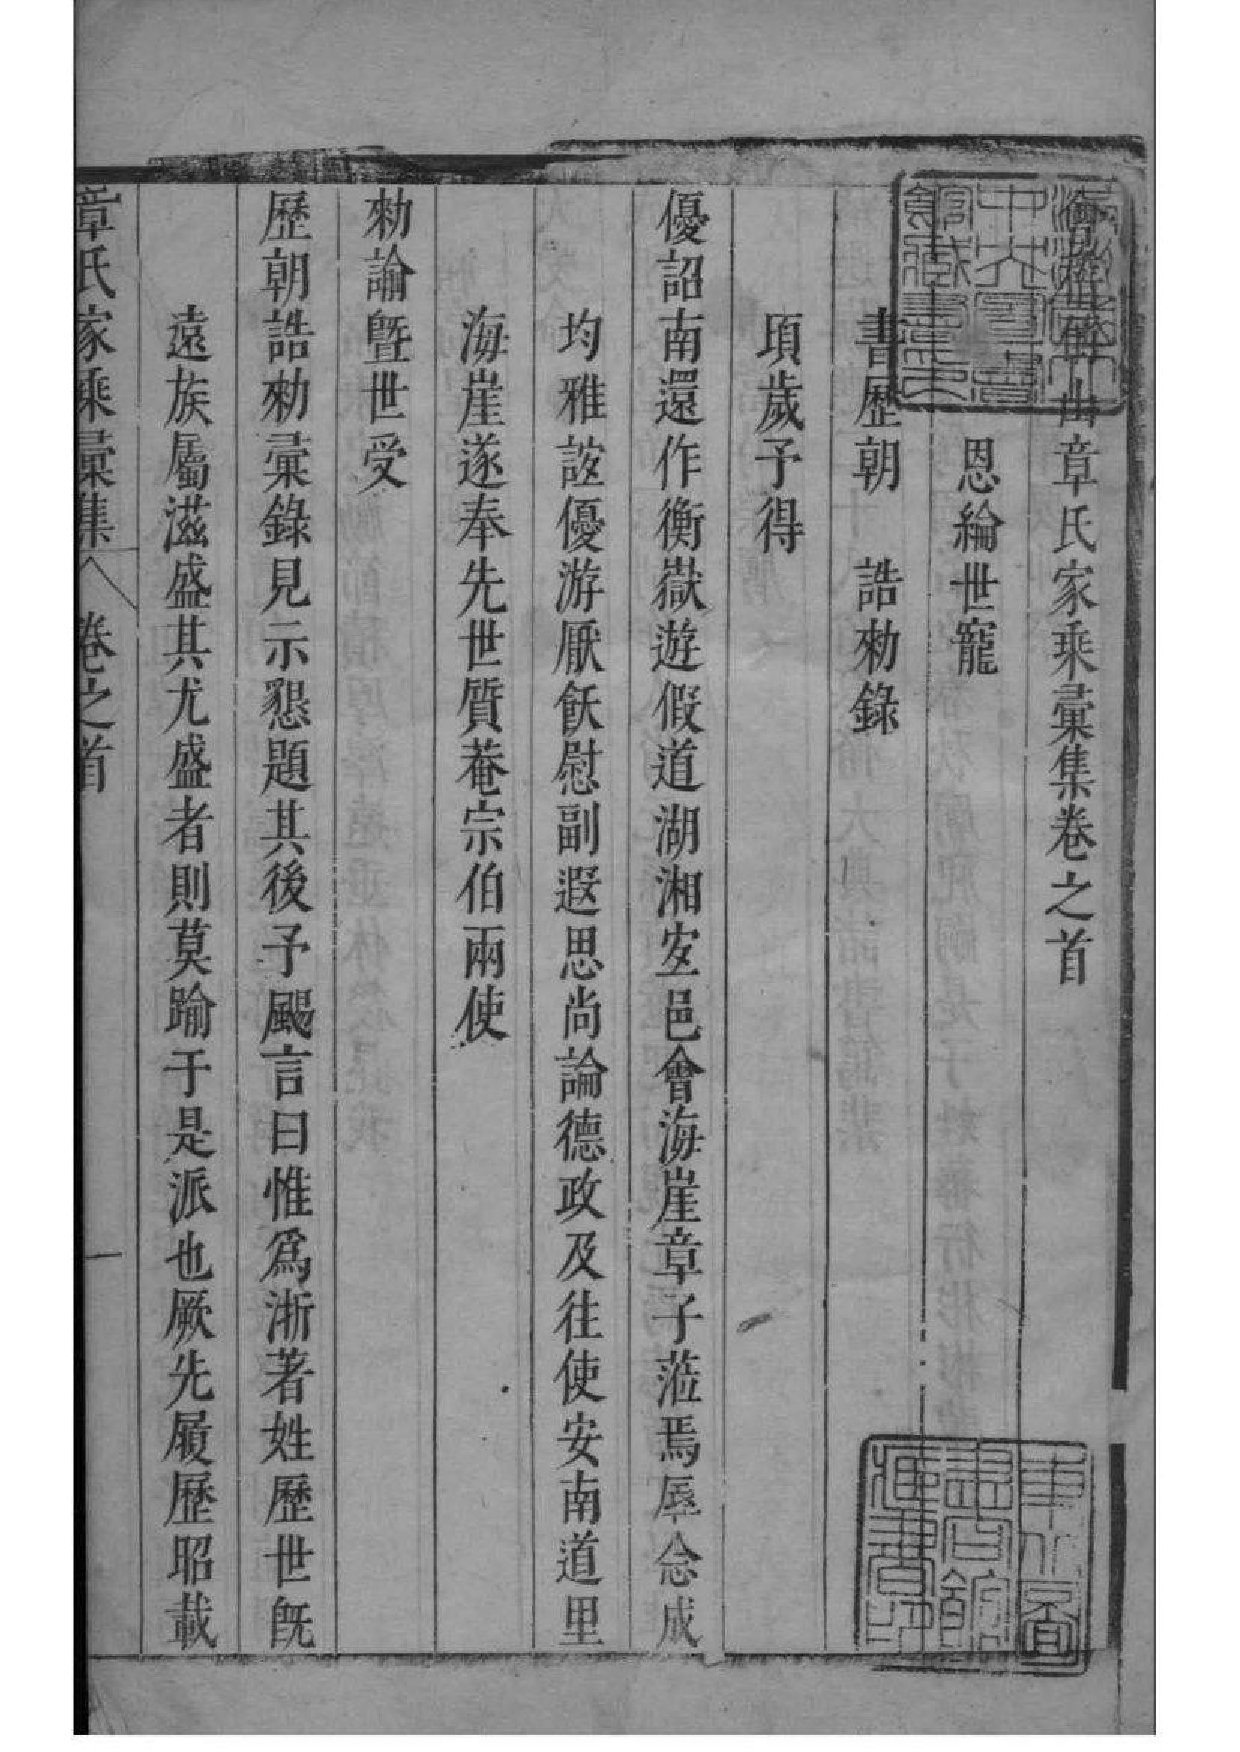 山章氏家乘彙集卷之首
恩綸世寵
書歷朝 誥勑錄
項歲予得
優詔南還作衡嶽遊假道湖湘安邑會海崖章子蒞焉辱念成
均雅誼優游厭飫慰副遐思尚論德政及往使安南道里
海崖遂奉先世質菴宗伯兩使
勑諭曁世受
歷朝誥勑彙錄見示懇題其後予颺言曰惟爲浙著姓歷世旣
遠族屬滋盛其尤盛者則莫踰于是派也厥先履歷昭載
章氏家乘彙集 卷之首 一